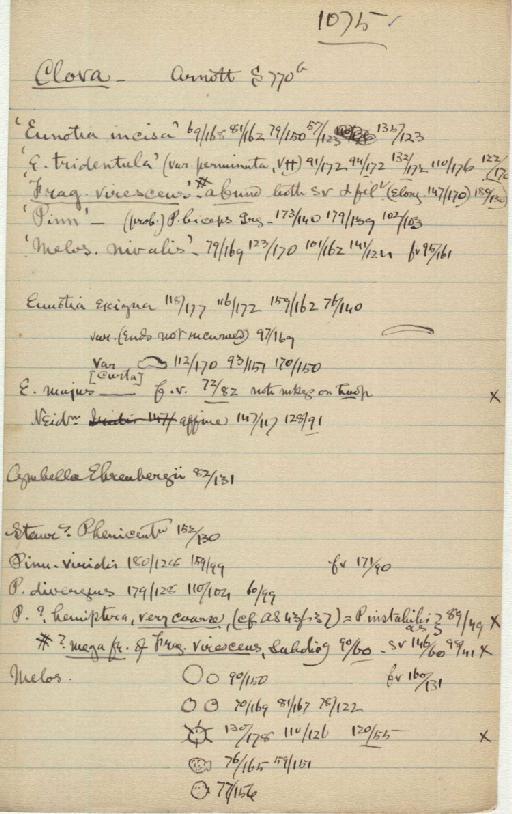 1075
Clova - Arnott S 770
'Eunotia incisa' 69/168 81/162 79/150 57/123 135/123
'E. tridentula' (var perminuta, VH) 91/172 94/172 132/172 110/176 122/170
'Frag. virescens' # abund both sv & fil (elong. 147/170)
'Pinn' - (prob.) P. biceps Greg - 173/140 179/139 102/103
'Melos. nivalis' - 79/169 123/170 101/162 141/124 fv 95/161
Eunotia exigua 115/177 116/172 159/162 76/140
var. (Ends not recurved) 97/169
var 112/170 93/151 170/150
[curta]
E. majus f.v. 72/82 note on x
Neid. affine 147/117 128/91
Cymbella Ehrenbergii 82/131
Staur. Phenicent 152/130
Pinn. viridis 180/126 159/99 fv 171/90
P. divergens 179/128 110/104 60/99
P. ? hemiptera, very coarse, (cf AS 43/37) = P instabilis AS 89/49 x
# ? mega fr. of Frag. virescens, 90/60 - sv 146/60 99/41 x
Melos. 90/150 fv 160/131
70/169 81/167 78/122
130/178 110/126 120/55 x
76/165 59/101
77/156